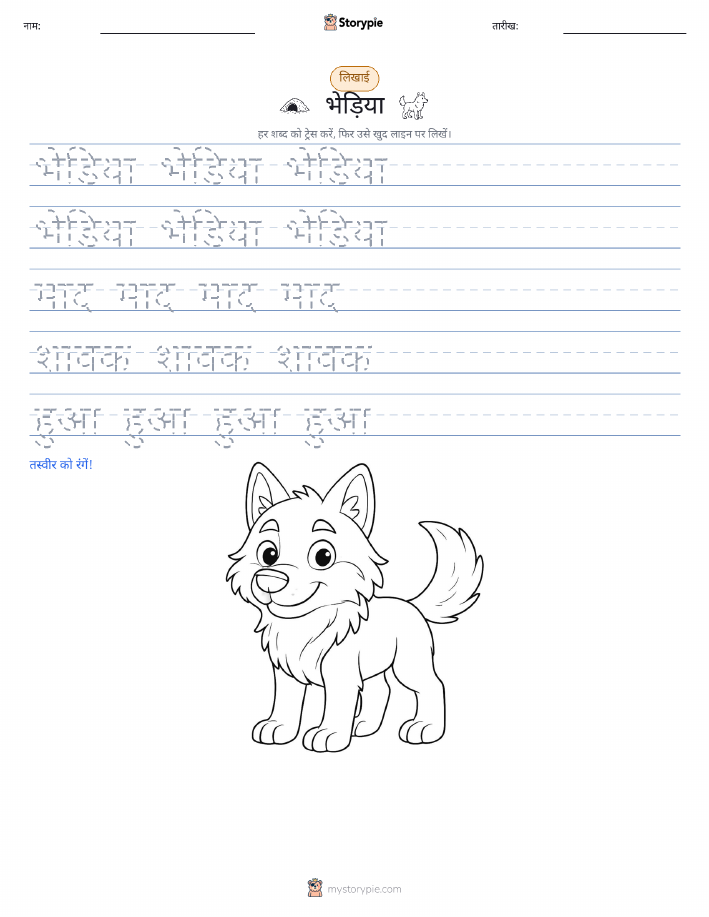 नाम:
Storypie
तारीख:
लिखाई
भेड़िया
हर शब्द को ट्रेस करें, फिर उसे खुद लाइन पर लिखें।
भेड़िया भेड़िया भेड़िया
भेड़िया भेड़िया भेड़िया
माद माद माद माद
शावक शावक शावक
हुआ हुआ हुआ हुआ
तस्वीर को रंगें!
mystorypie.com